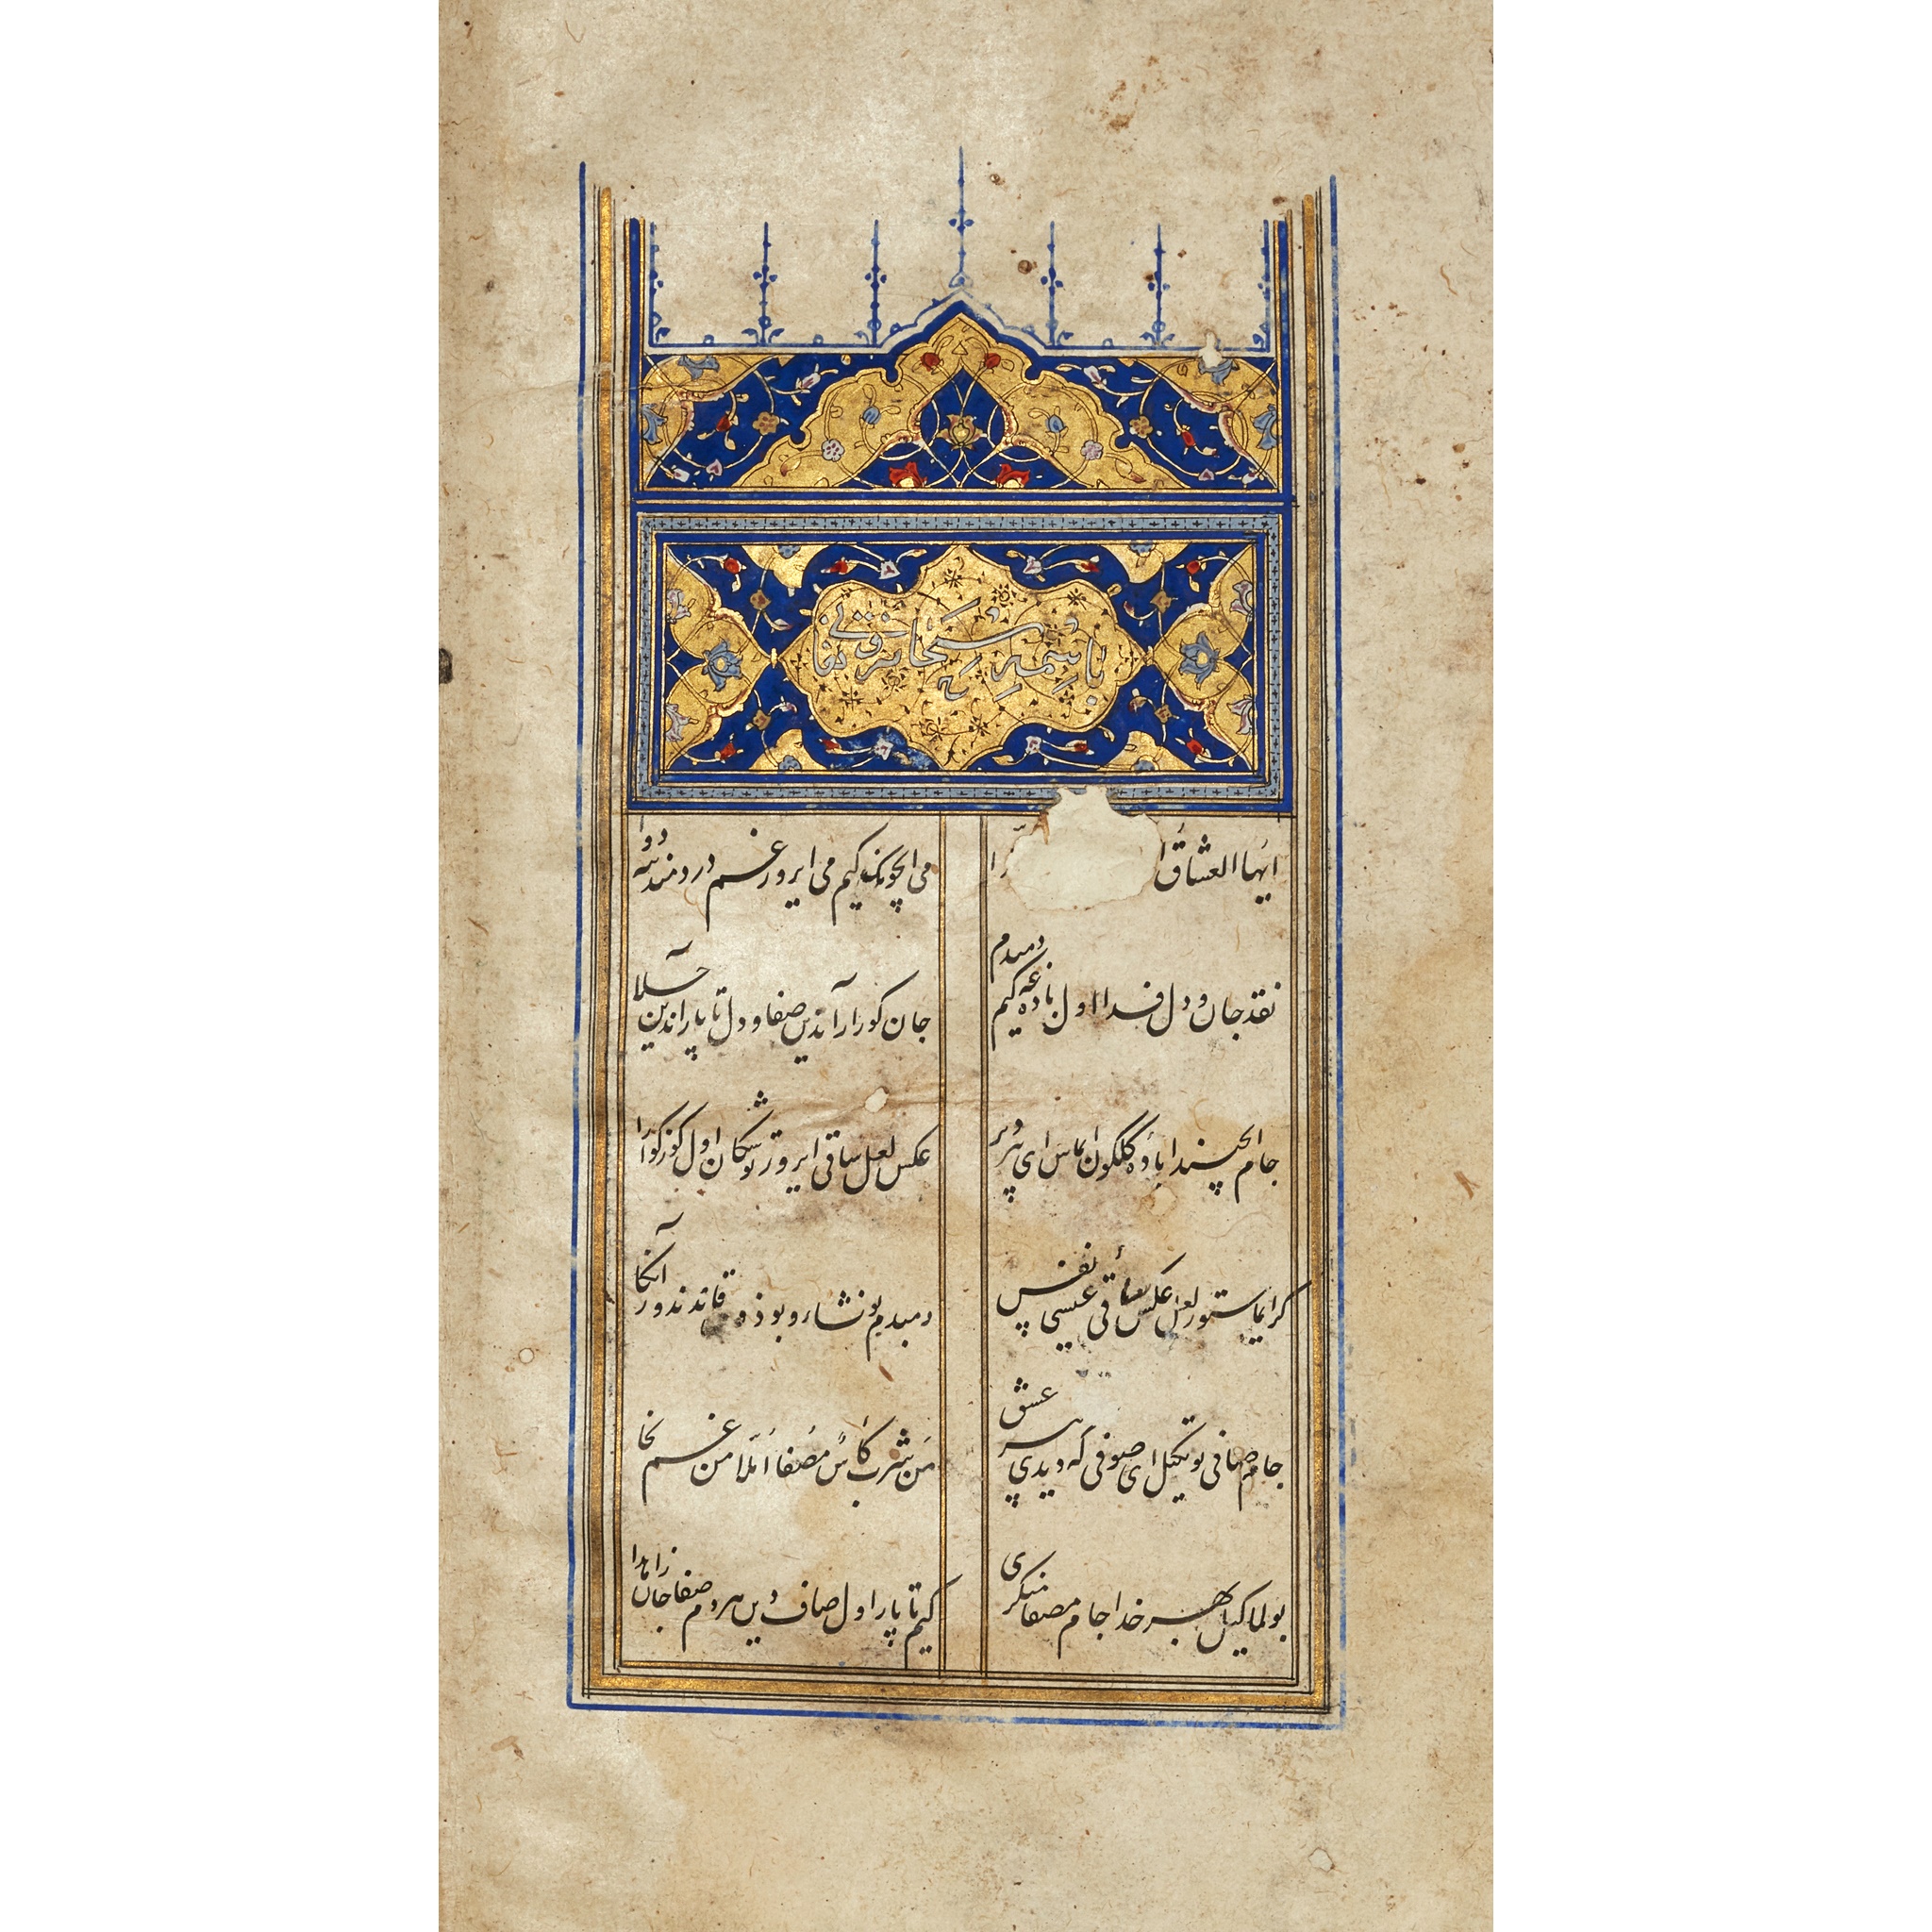 باسمه سبحانه و تعالی
ایها العشاق
می ایچونک کیم می ایرور غم دردمندیغه دوا
نقد جان و دل فدا اول باده غه کیم دمبدم
جان کورار آندین صفا و دل تاپار اندین جلا
جام ایچسند ابادهٔ گلگون ایماس ای پیر دیر
عکس لعل ساقی ایرور توشکان اول کوزکو ارا
کر ایماستور لعل عکسی ساقی عیسی نفس
دمبدم بو نشاء و بو ذوق قاندندور انکا
جام صافی توتکیل ای صوفی که دیدی پیر عشق
من شرب کأس مصفا املا من غم نجا
بولماکیل بهر خدا جام مصفا منکری
کیم تاپار اول صافدین هردم صفا جان زاهدا